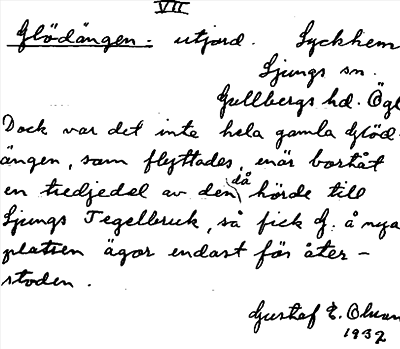 VII
Glödängen:- utjord. Lyckhem
Ljungs sn.
Gullbergs hd. Ögl
Dock var det inte hela gamla Glöd-
ängen, som flyttades, enär bortåt
en tredjedel av den då hörde till
Ljungs Tegelbruk, så fick f. å nya
platsen ägor endast för åter-
stoden.
Gustaf E. Olsson
1932